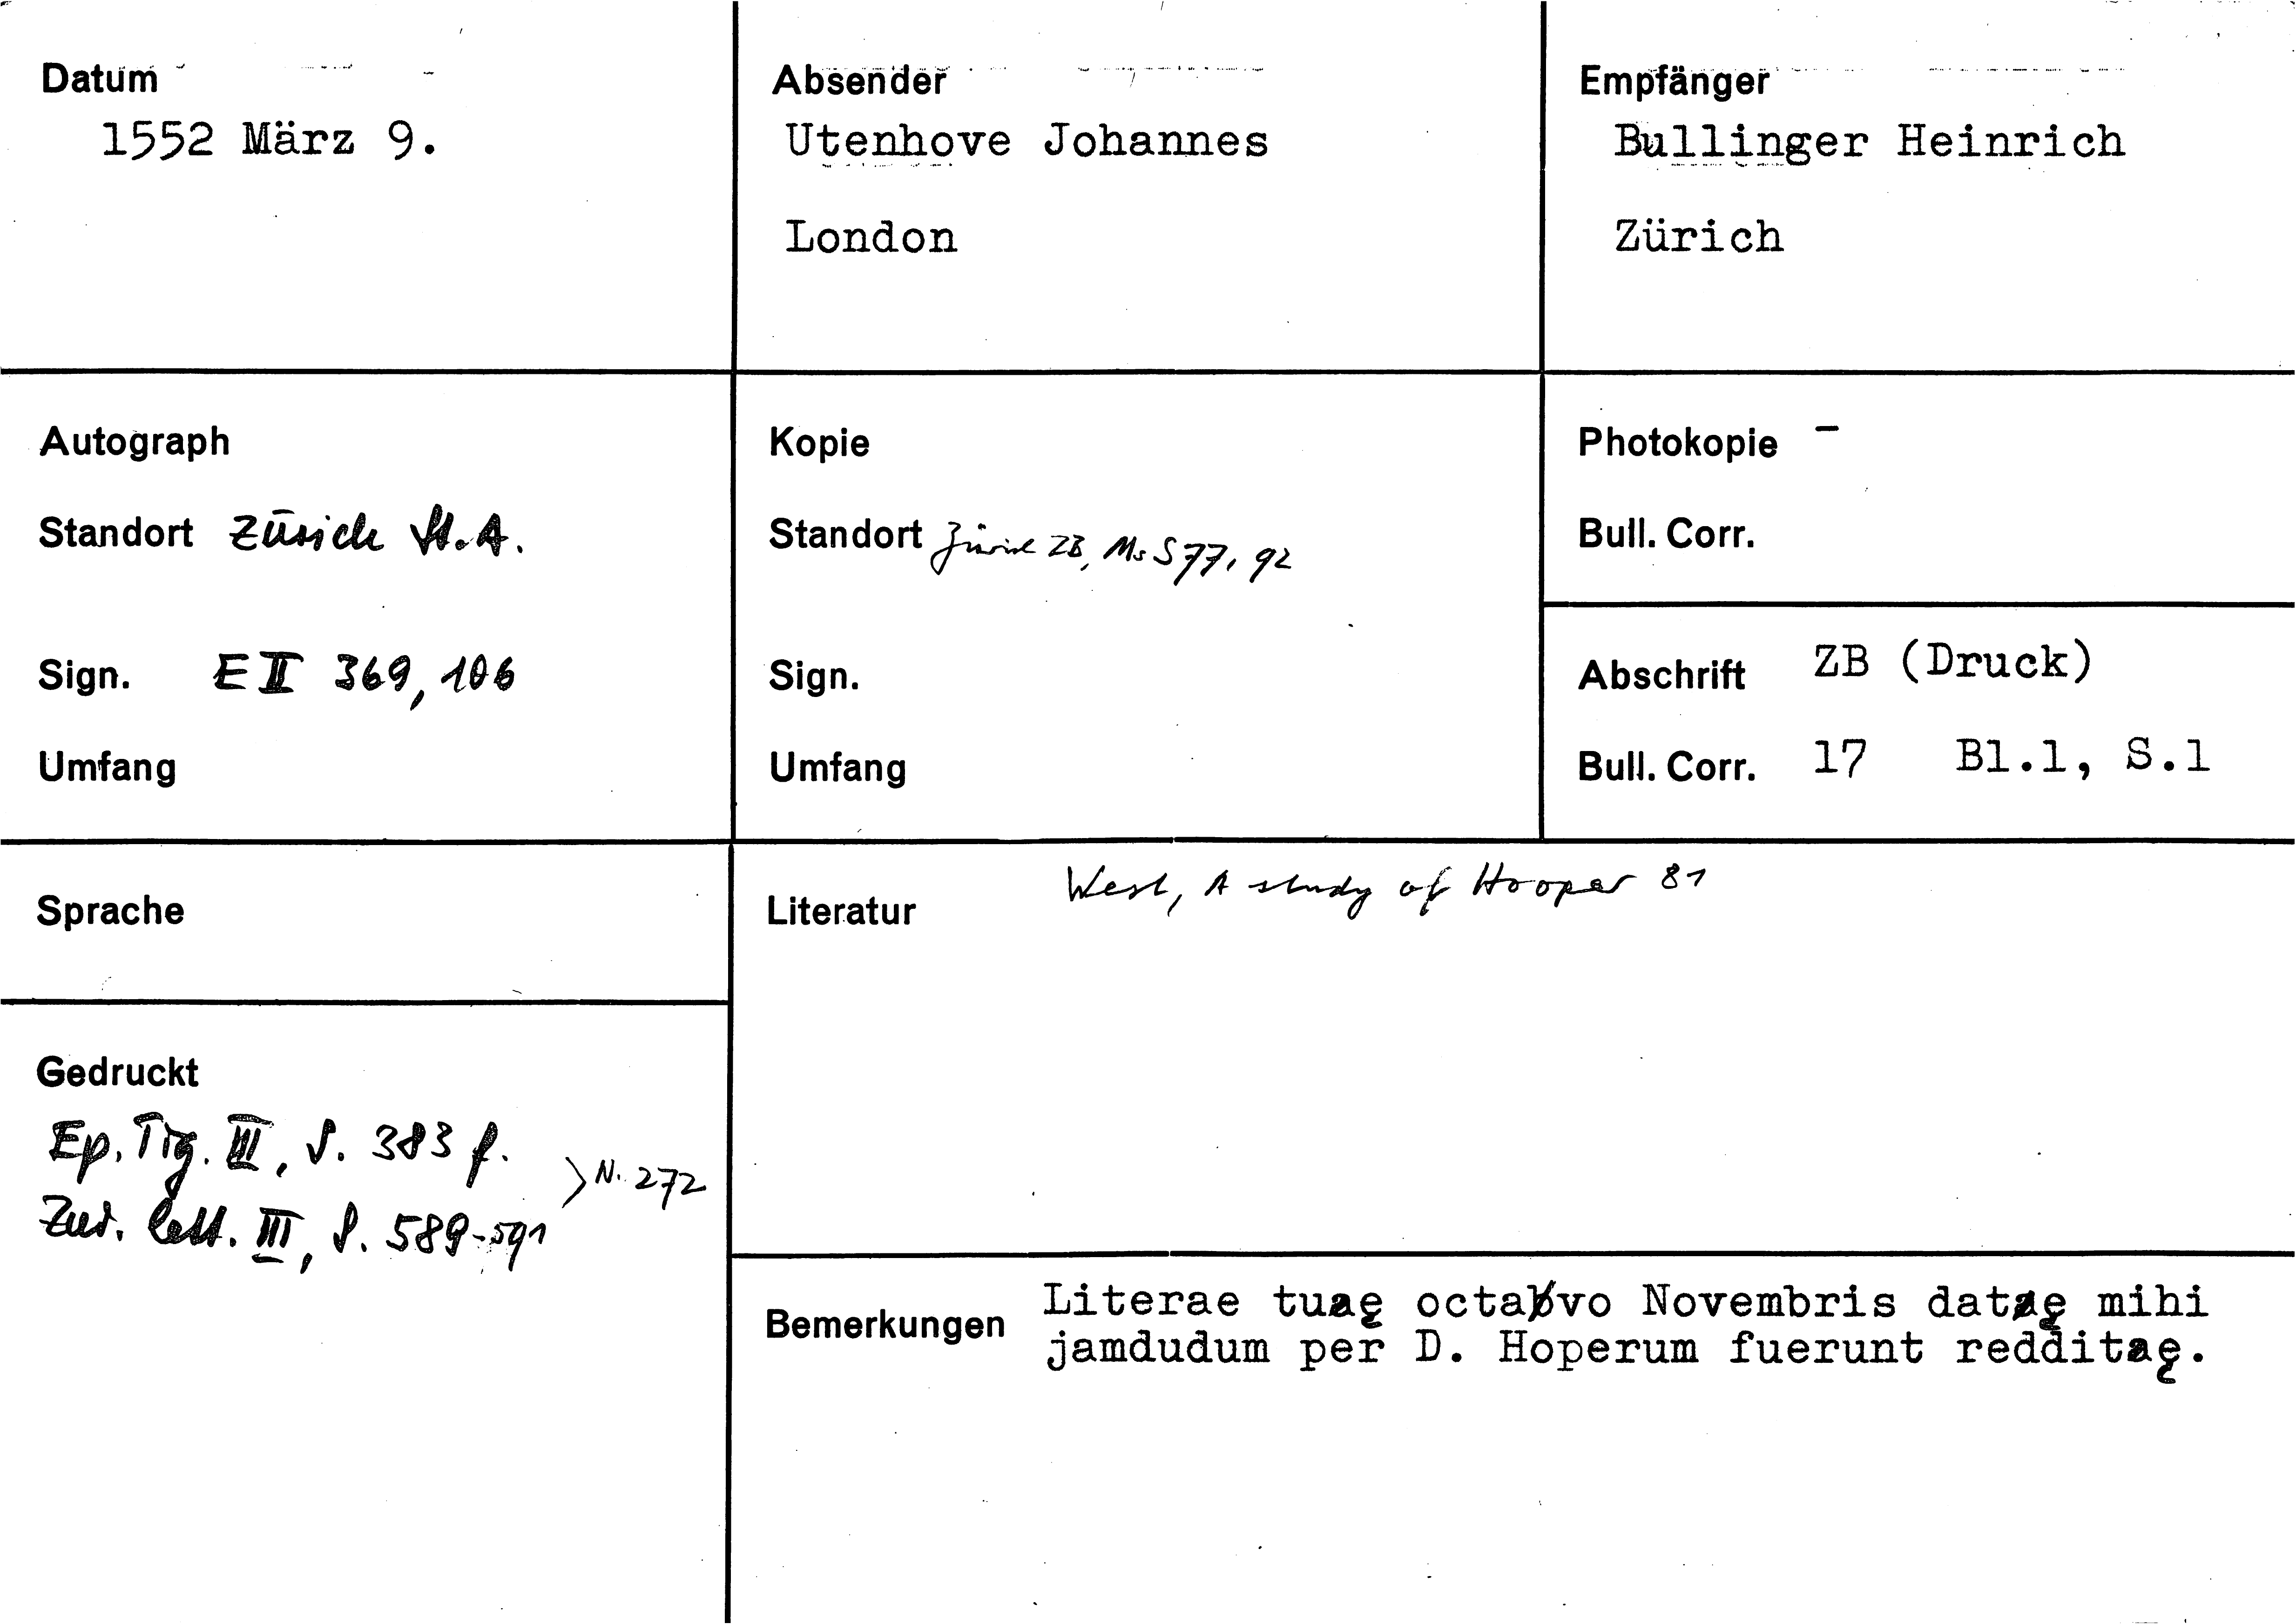 Datum
1552 März 9.
Absender
Utenhove Johannes
London
Empfänger
Bullinger Heinrich
Zürich
Autograph
Standort Zürich St.A.
Sign. E II 369, 106
Umfang
Kopie
Standort Zürich ZB, Ms S 77, 92
Sign.
Umfang
Photokopie -
Bull. Corr.
Abschrift ZB (Druck)
Bull. Corr. 17 Bl.1, S.1
Sprache
Literatur West, A study of Hooper 81
Gedruckt
Ep. Tig. III, S. 383 f.
Zur. lett. III, S. 589-591
> N. 272
Bemerkungen Literae tuę octavo Novembris datę mihi
jamdudum per D. Hoperum fuerunt redditę.